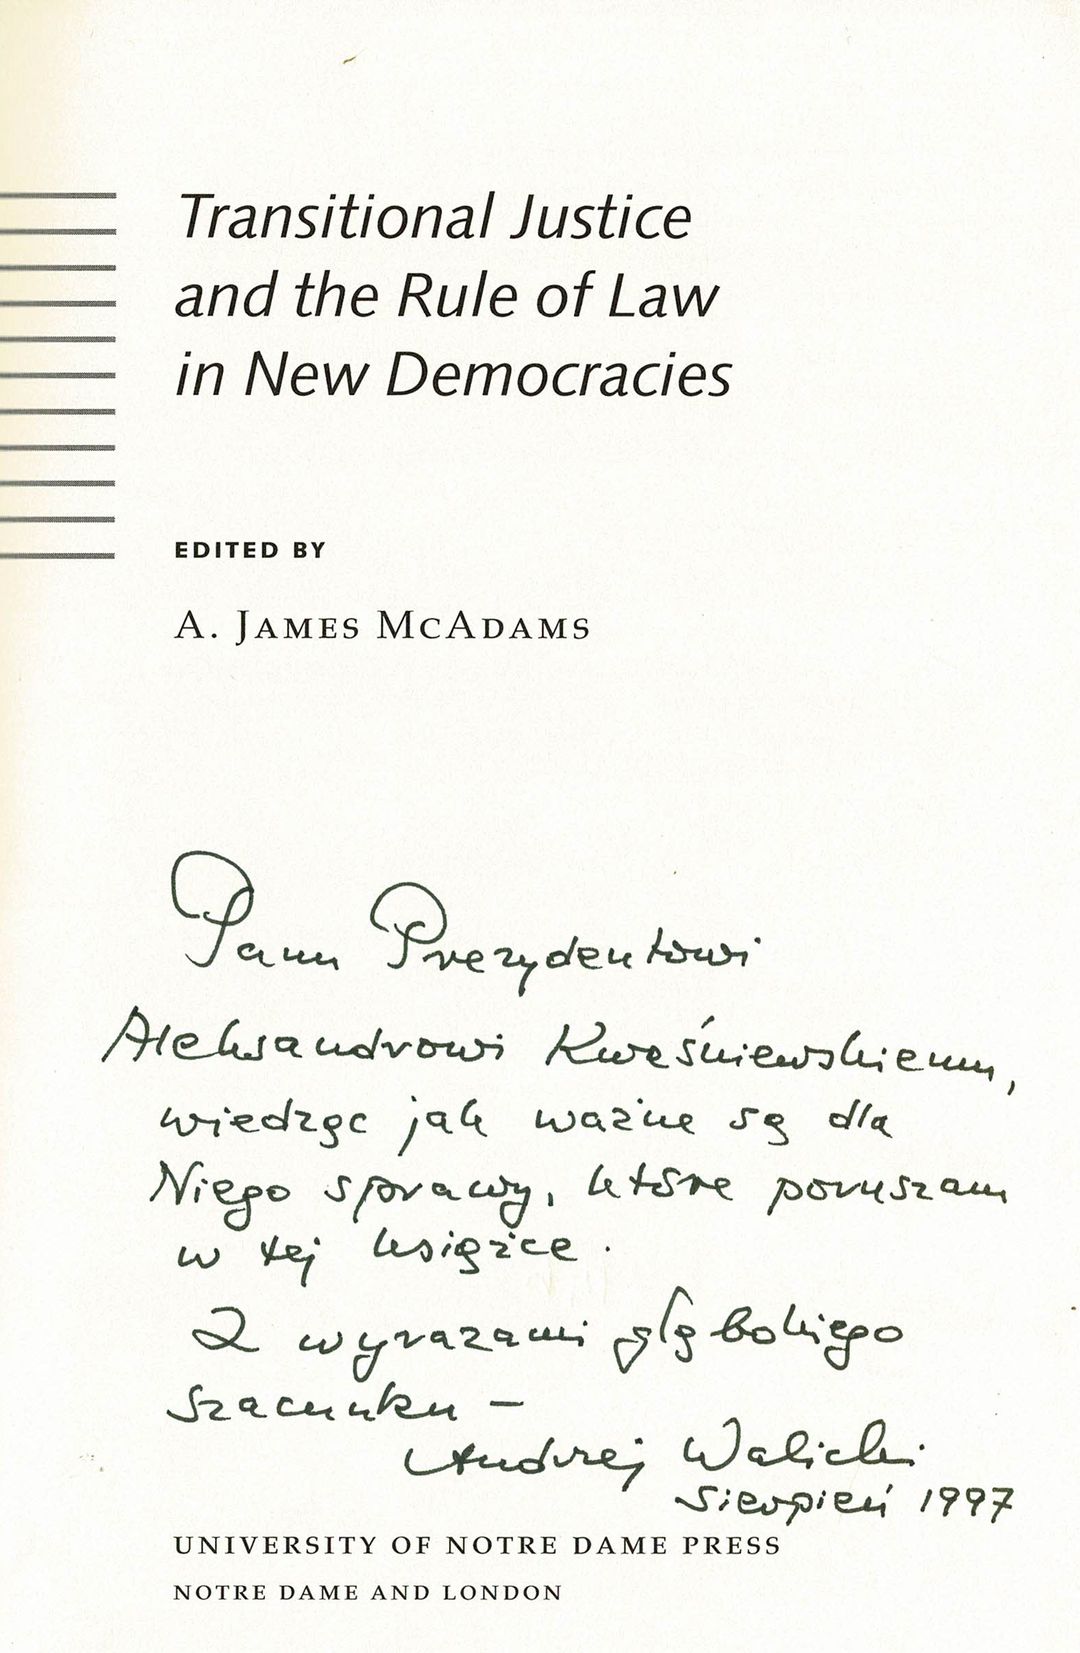 Transitional Justice
and the Rule of Law
in New Democracies
EDITED BY
A. JAMES MCADAMS
Panu Prezydentowi
Aleksandrowi Kwaśniewskiemu,
wiedząc jak ważne są dla
Niego sprawy, które poruszam
w tej książce.
Z wyrazami głębokiego
szacunku –
Andrzej Walicki
sierpień 1997
UNIVERSITY OF NOTRE DAME PRESS
NOTRE DAME AND LONDON